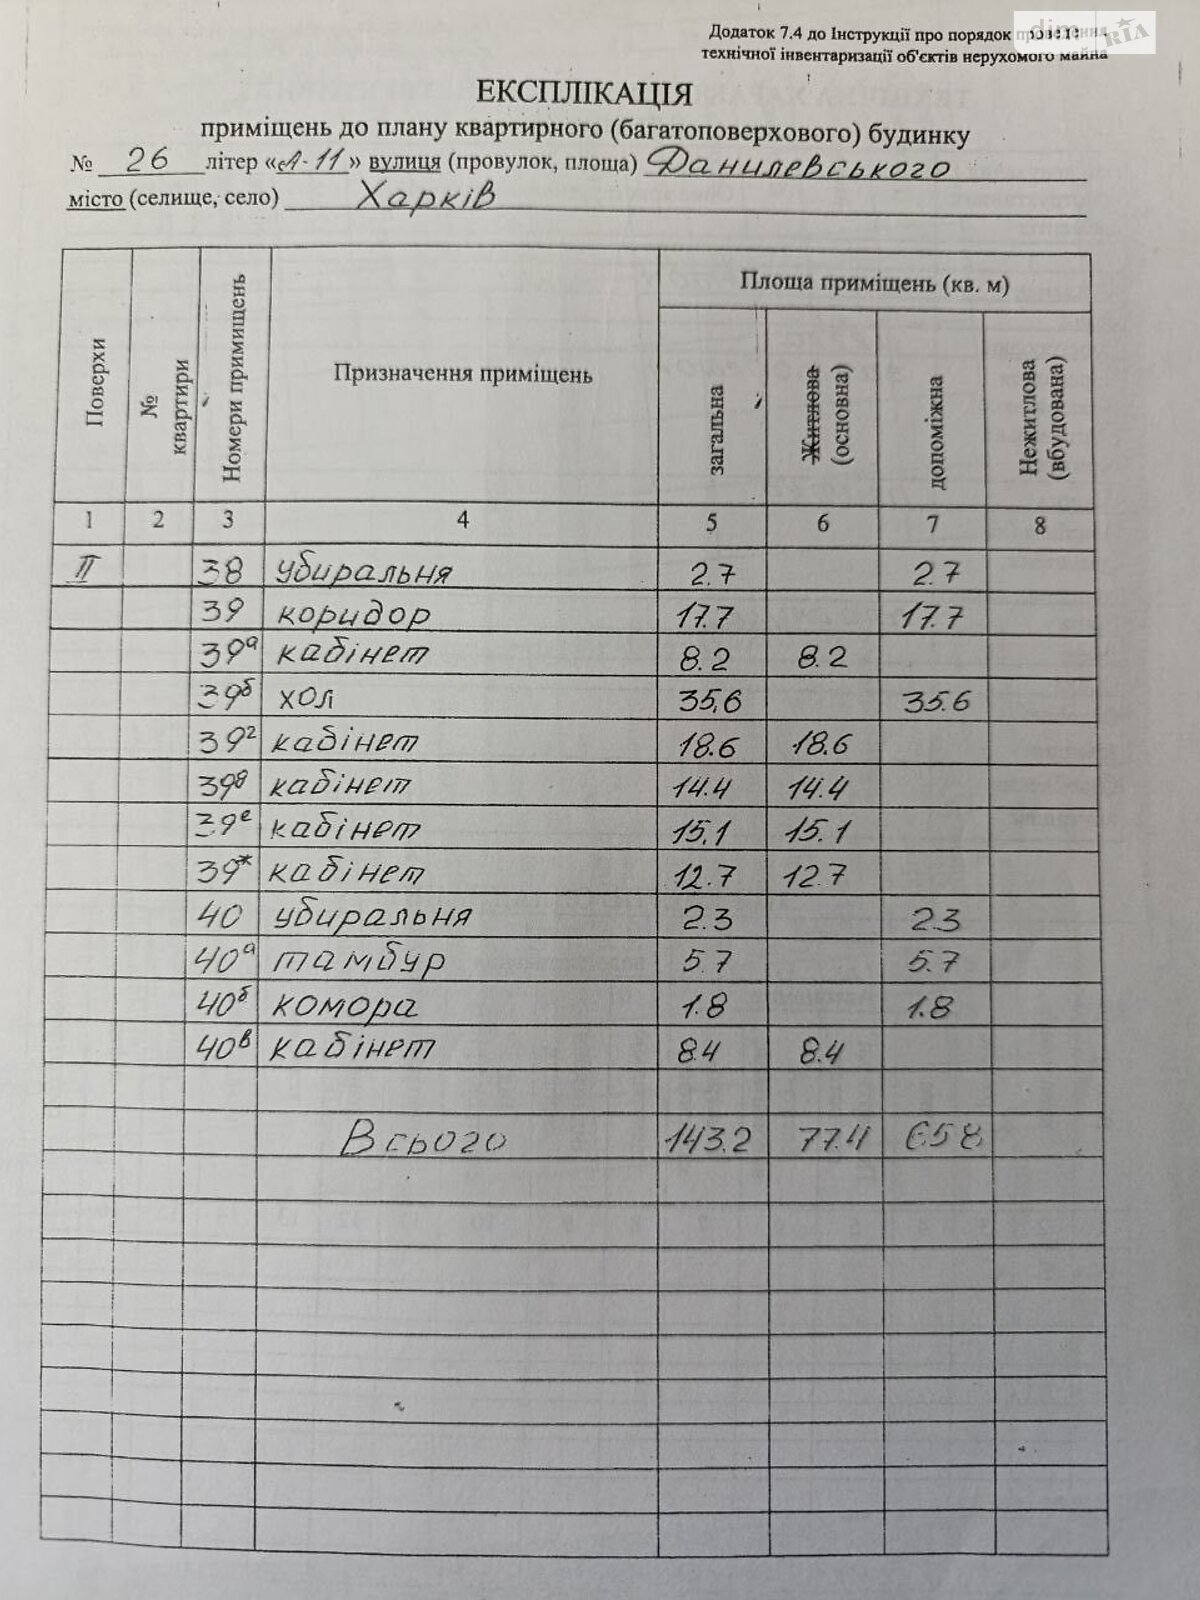 Додаток 7.4 до Інструкції про порядок проведення
технічної інвентаризації об'єктів нерухомого майна
dim RIA
ЕКСПЛІКАЦІЯ
приміщень до плану квартирного (багатоповерхового) будинку
№ 26 літер «А-11» вулиця (провулок, площа) Данилевського
місто (селище, село) Харків
Поверхи № квартири Номери примищень Призначення приміщень Площа приміщень (кв. м)
загальна Житлова (основна) допоміжна Нежитлова (вбудована)
1 2 3 4 5 6 7 8
II 38 убиральня 2.7 2.7
39 коридор 17.7 17.7
39а кабінет 8.2 8.2
39б хол 35,6 35.6
39г кабінет 18.6 18.6
39д кабінет 14.4 14.4
39е кабінет 15,1 15.1
39ж кабінет 12.7 12.7
40 убиральня 2.3 2.3
40а тамбур 5.7 5.7
40б комора 1.8 1.8
40в кабінет 8.4 8.4
Всього 143.2 77.4 65.8